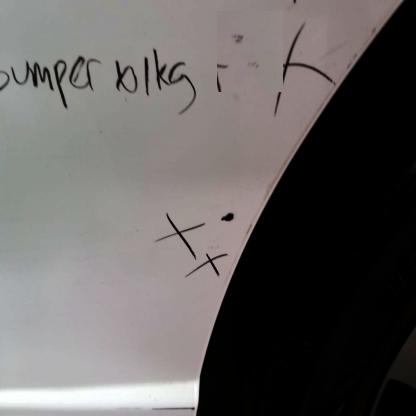 bumper blkg
x
x